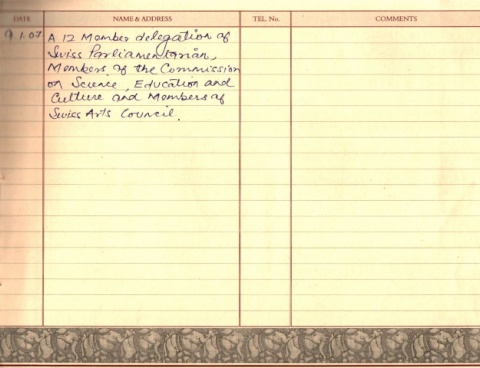 DATE NAME & ADDRESS TEL. No. COMMENTS
9.1.07 A 12 Member delegation of
Swiss Parliamentarian,
Members of the Commission
on Science, Education and
Culture and Members of
Swiss Arts Council.